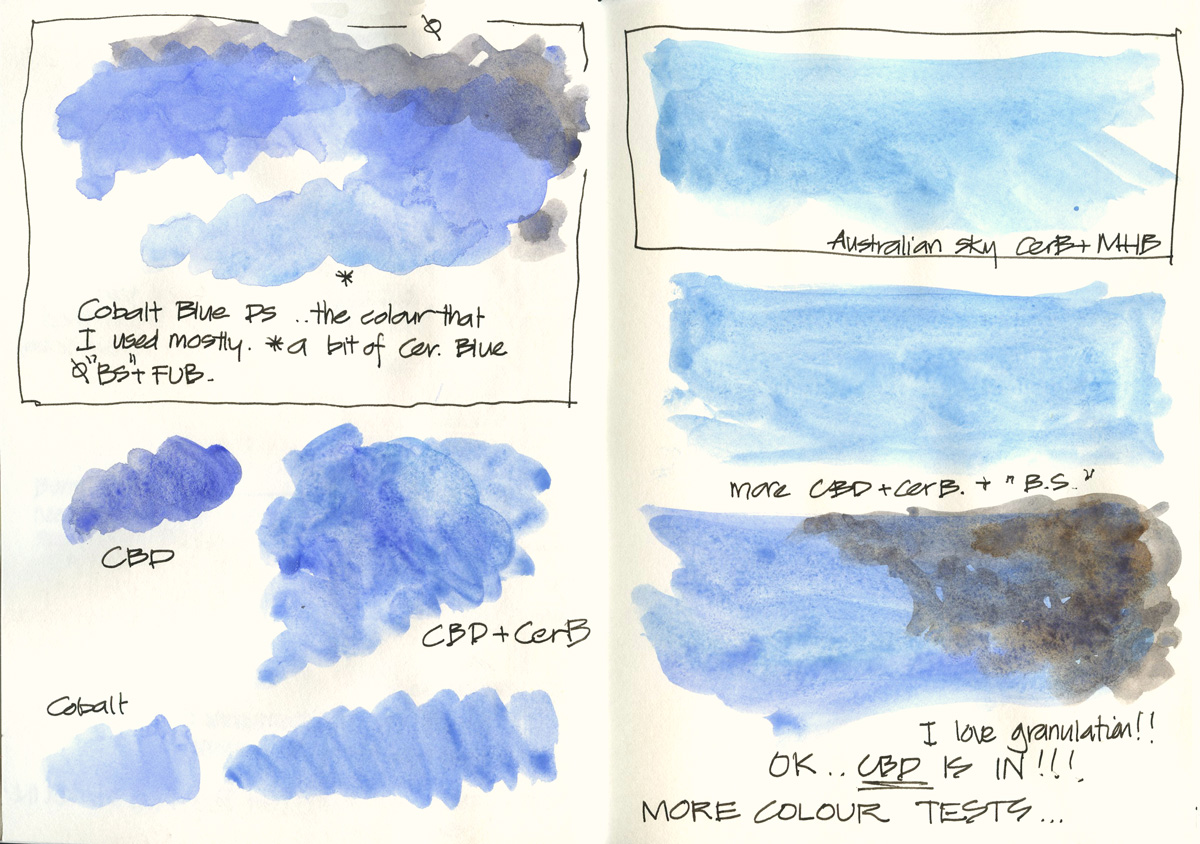 Cobalt Blue DS ..the colour that
I used mostly. *a bit of Cer. Blue
"BS"+ FUB.
CBD
CBD+CerB
Cobalt
Australian sky CerB+ MHB
more CBD+CerB. + "B.S."
I love granulation!!
OK.. CBD IS IN!!!.
MORE COLOUR TESTS...